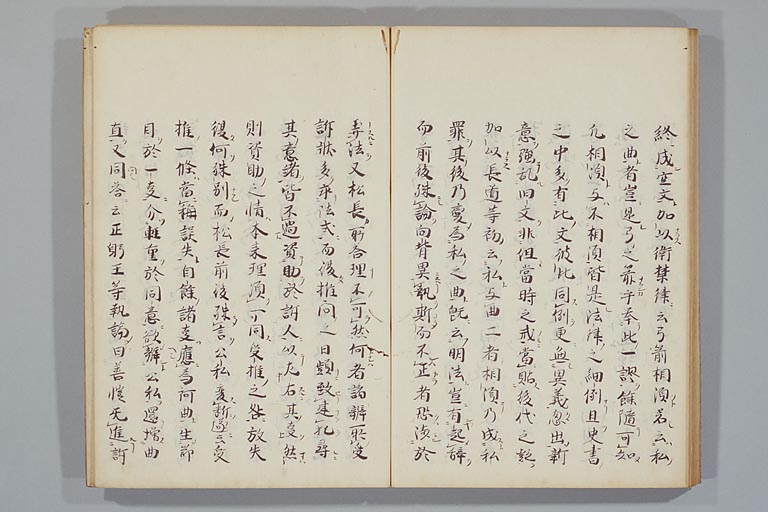 終成空文加以衛禁律云弓箭相須若云私
之曲者豈是弓之箭乎奉此一謬餘隨可知
凡相須与不相須皆是法律之細例且史書
之中多有此文彼此同例更無異義忽出新
意強乱旧文非但當時之惑當貽後代之疑
加以長道等初云私与曲二者相須乃成私
罪其後乃變為私之曲既云明法豈有起辞
而前後殊論向背異執斯而不正者恐涉於
弄法又松長所答理不可然何者詔辨取受
訴状多乖法式而後推問之日頗致違孔尋
其意諸皆不過資助於訴人以左右其变然
則資助之情本来理須可同受推之咎放失
復何殊別而松長前後殊言公私変新遂受
推一條當稱誤失自餘諸变應為阿曲生節
目於一变分軽重於同意欲辨公私還増曲
直又同答云正躬王等執論曰善愷无進訴